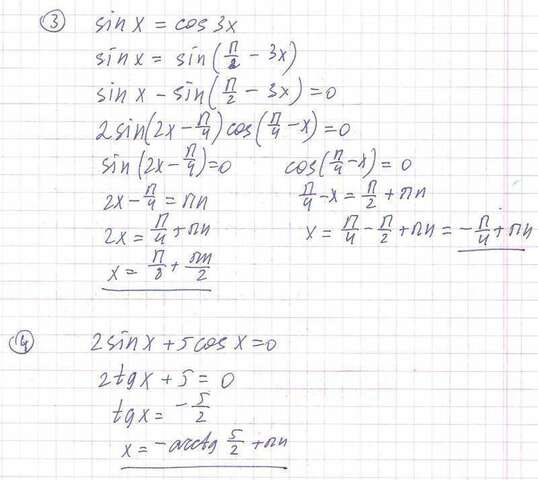 ③ sin x = cos 3x
sin x = sin(π/2 − 3x)
sin x − sin(π/2 − 3x) = 0
2 sin(2x − π/4) cos(π/4 − x) = 0
sin(2x − π/4) = 0    cos(π/4 − x) = 0
2x − π/4 = πn    π/4 − x = π/2 + πn
2x = π/4 + πn    x = π/4 − π/2 + πn = −π/4 + πn
x = π/8 + πn/2
④ 2 sin x + 5 cos x = 0
2 tg x + 5 = 0
tg x = −5/2
x = −arctg 5/2 + πn